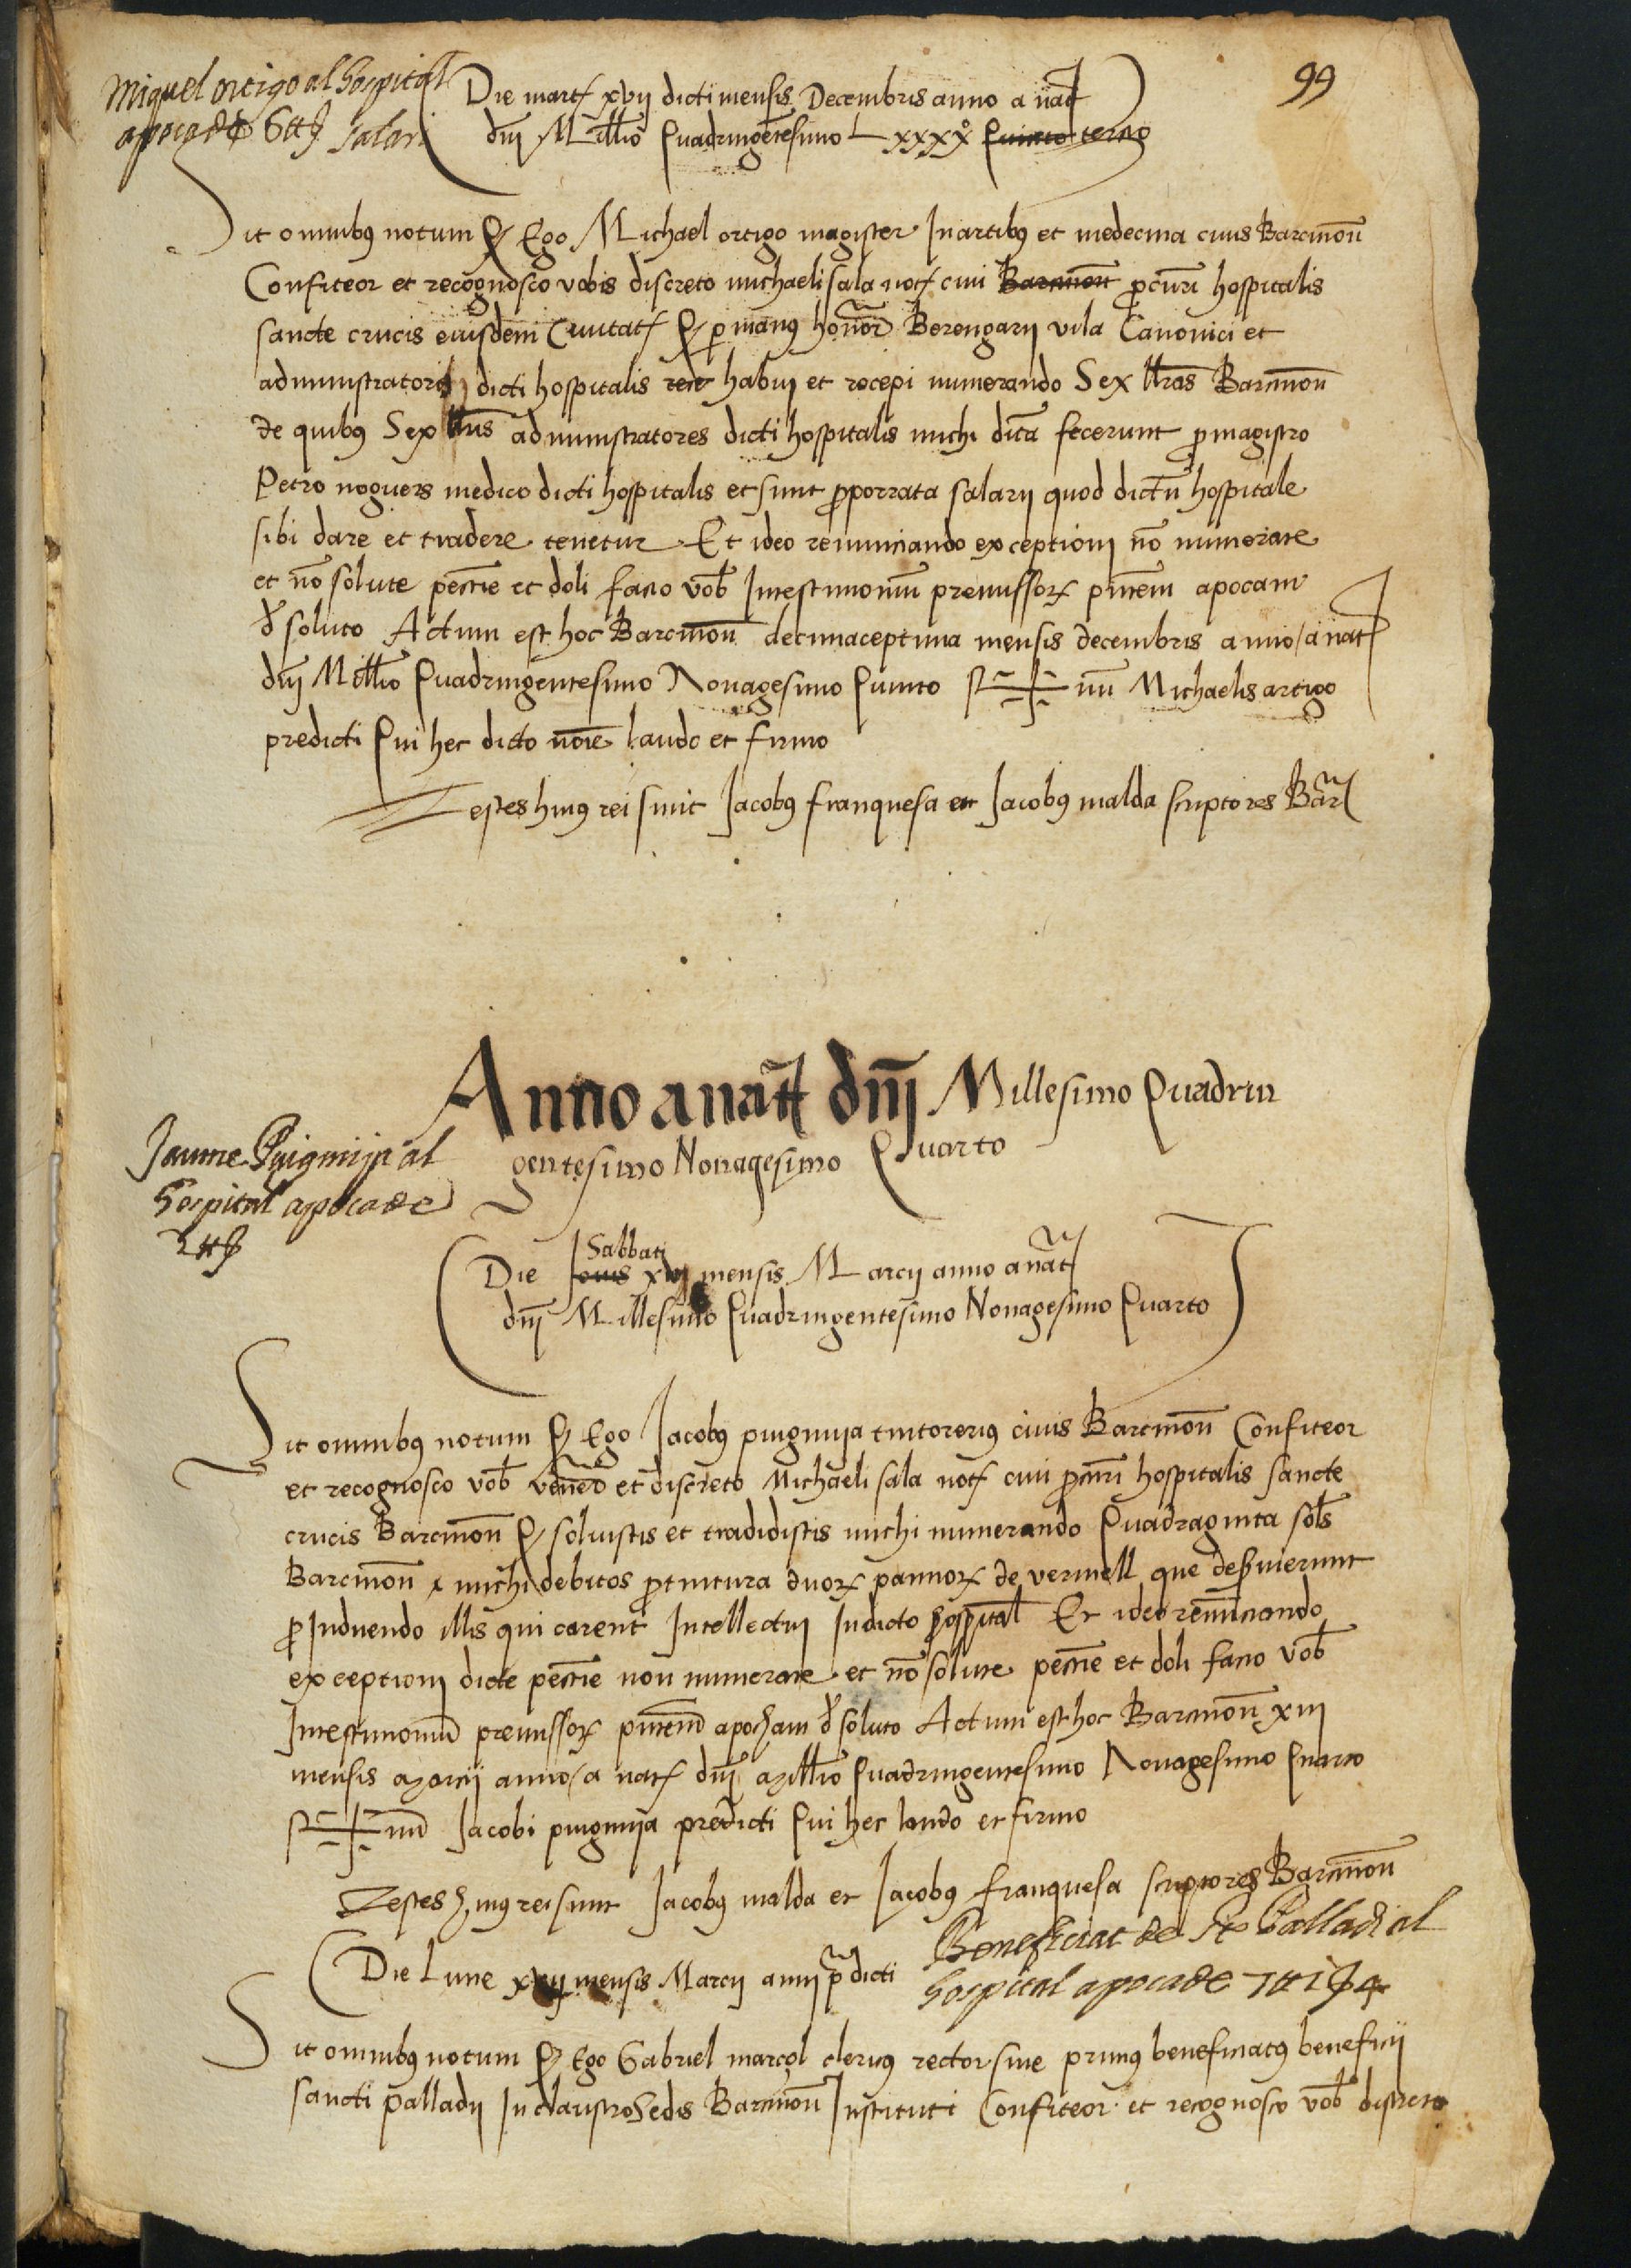 99
Miquel ortigo al hospital
apoca de 6 ₶ salari
Die mart xvij dicti mensis Decembris anno a nat
dnj Millio Quadringetesimo Lxxxxº Quinto terno
Sit omnibus notum q Ego Michael ortigo magister In artibus et medecina civis Barcinon
Confiteor et recognosco vobis discreto michaeli sala not civi Barcinon procuri hospitalis
sancte crucis eiusdem Civitat q per manus honor Berengarij vila Canonici et
administratoris dicti hospitalis habui et recepi numerando Sex llras Barcinon
de quibus Sex administratores dicti hospitalis michi dita fecerunt pro magistro
Petro noguers medico dicti hospitalis et sunt pro porrata salarij quod dictu hospitale
sibi dare et tradere tenetur Et ideo renunciando exceptioni no numerate
et no solute pecnie et doli facio vob In testimoniu premissor pntem apocam
de soluto Actum est hoc Barcinon decimaceptima mensis decembris anno a nat
dnj Millio Quadringentesimo Nonagesimo Quinto S+num Michaelis artigo
predicti Qui hec dicto noie laudo et firmo
Testes huius rei sunt Jacobus franquesa et Jacobus malda scriptores Bar
Anno a nat dnj Millesimo Quadrin
gentesimo Nonagesimo Quarto
Jaume Puigmija al
hospital apoca de
2 ₶
Sabbati
Die Jovis mensis Marcij anno a nat
dnj Millesimo Quadringentesimo Nonagesimo Quarto
Sit omnibus notum q Ego Jacobus puigmija tintorerius civis Barcinon Confiteor
et recognosco vob vener et discreto Michaeli sala not civi procuri hospitalis sancte
crucis Barcinon q solvistis et tradidistis michi numerando Quadraginta sols
Barcinon michi debitos pro tintura duor pannor de vermell que deservierunt
pro Induendo illis qui carent Intellectui In dicto hospital Et ideo renunciando
exceptioni dicte pecnie non numerate et no solute pecnie et doli facio vob
In testimoniu premissor pntem apocham de soluto Actum est hoc Barcinon xiii
mensis marcij anno a nat dnj millio Quadringentesimo Nonagesimo Quarto
S+num Jacobi puigmija predicti Qui hec laudo et firmo
Testes huius rei sunt Jacobus malda et Jacobus franquesa scriptores Barcinon
Die Lune mensis Marcij anni predicti
Beneficiat de St Palladi al
hospital apoca de 7 ₶ 1 ß 4
Sit omnibus notum q Ego Gabriel marçol clericus rector sive primus beneficiatus beneficij
sancti palladij In claustro Sedis Barcinon Instituti Confiteor et recognosco vob discreto